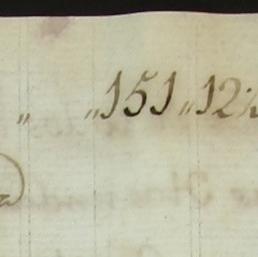 " "151"12